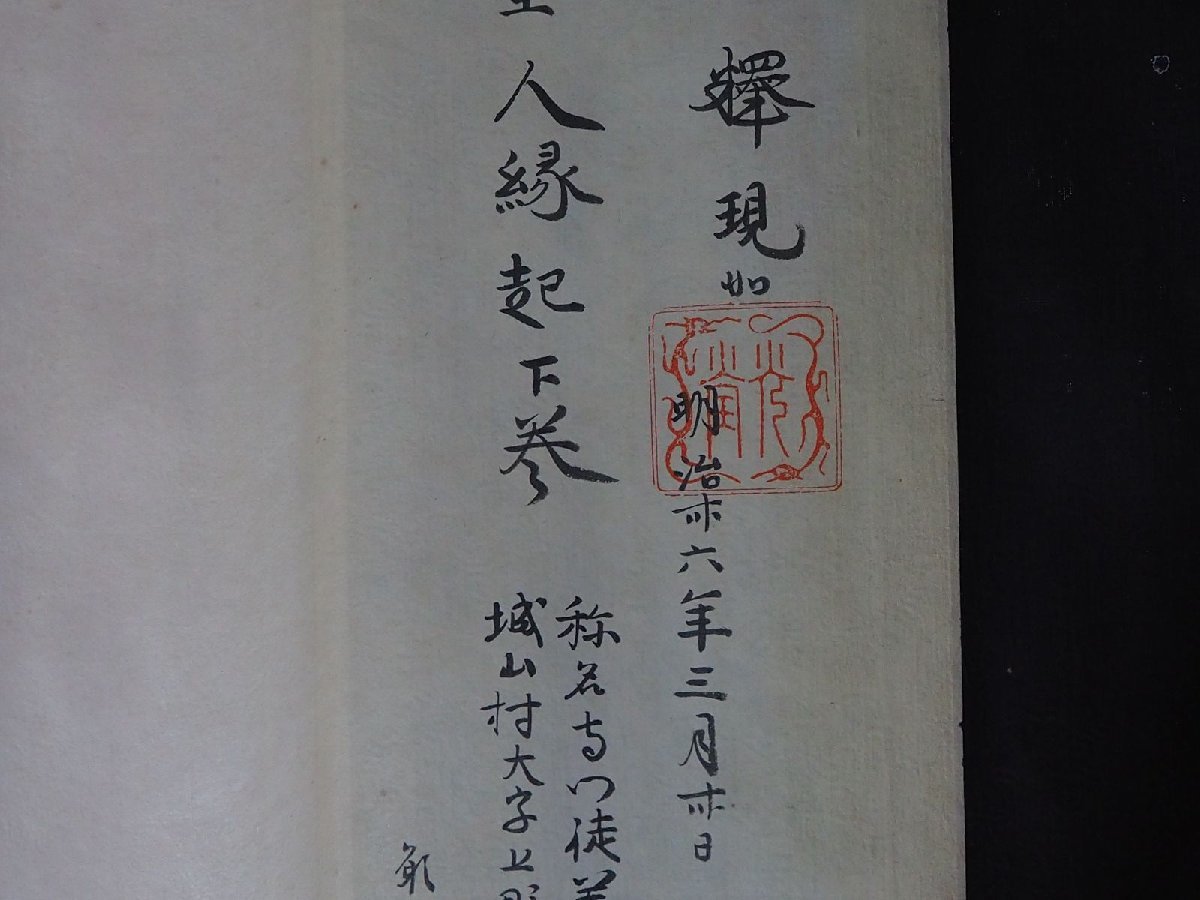 釋現如
明治卅六年三月卅日
人縁起下巻
称名寺門徒
城山村大字上